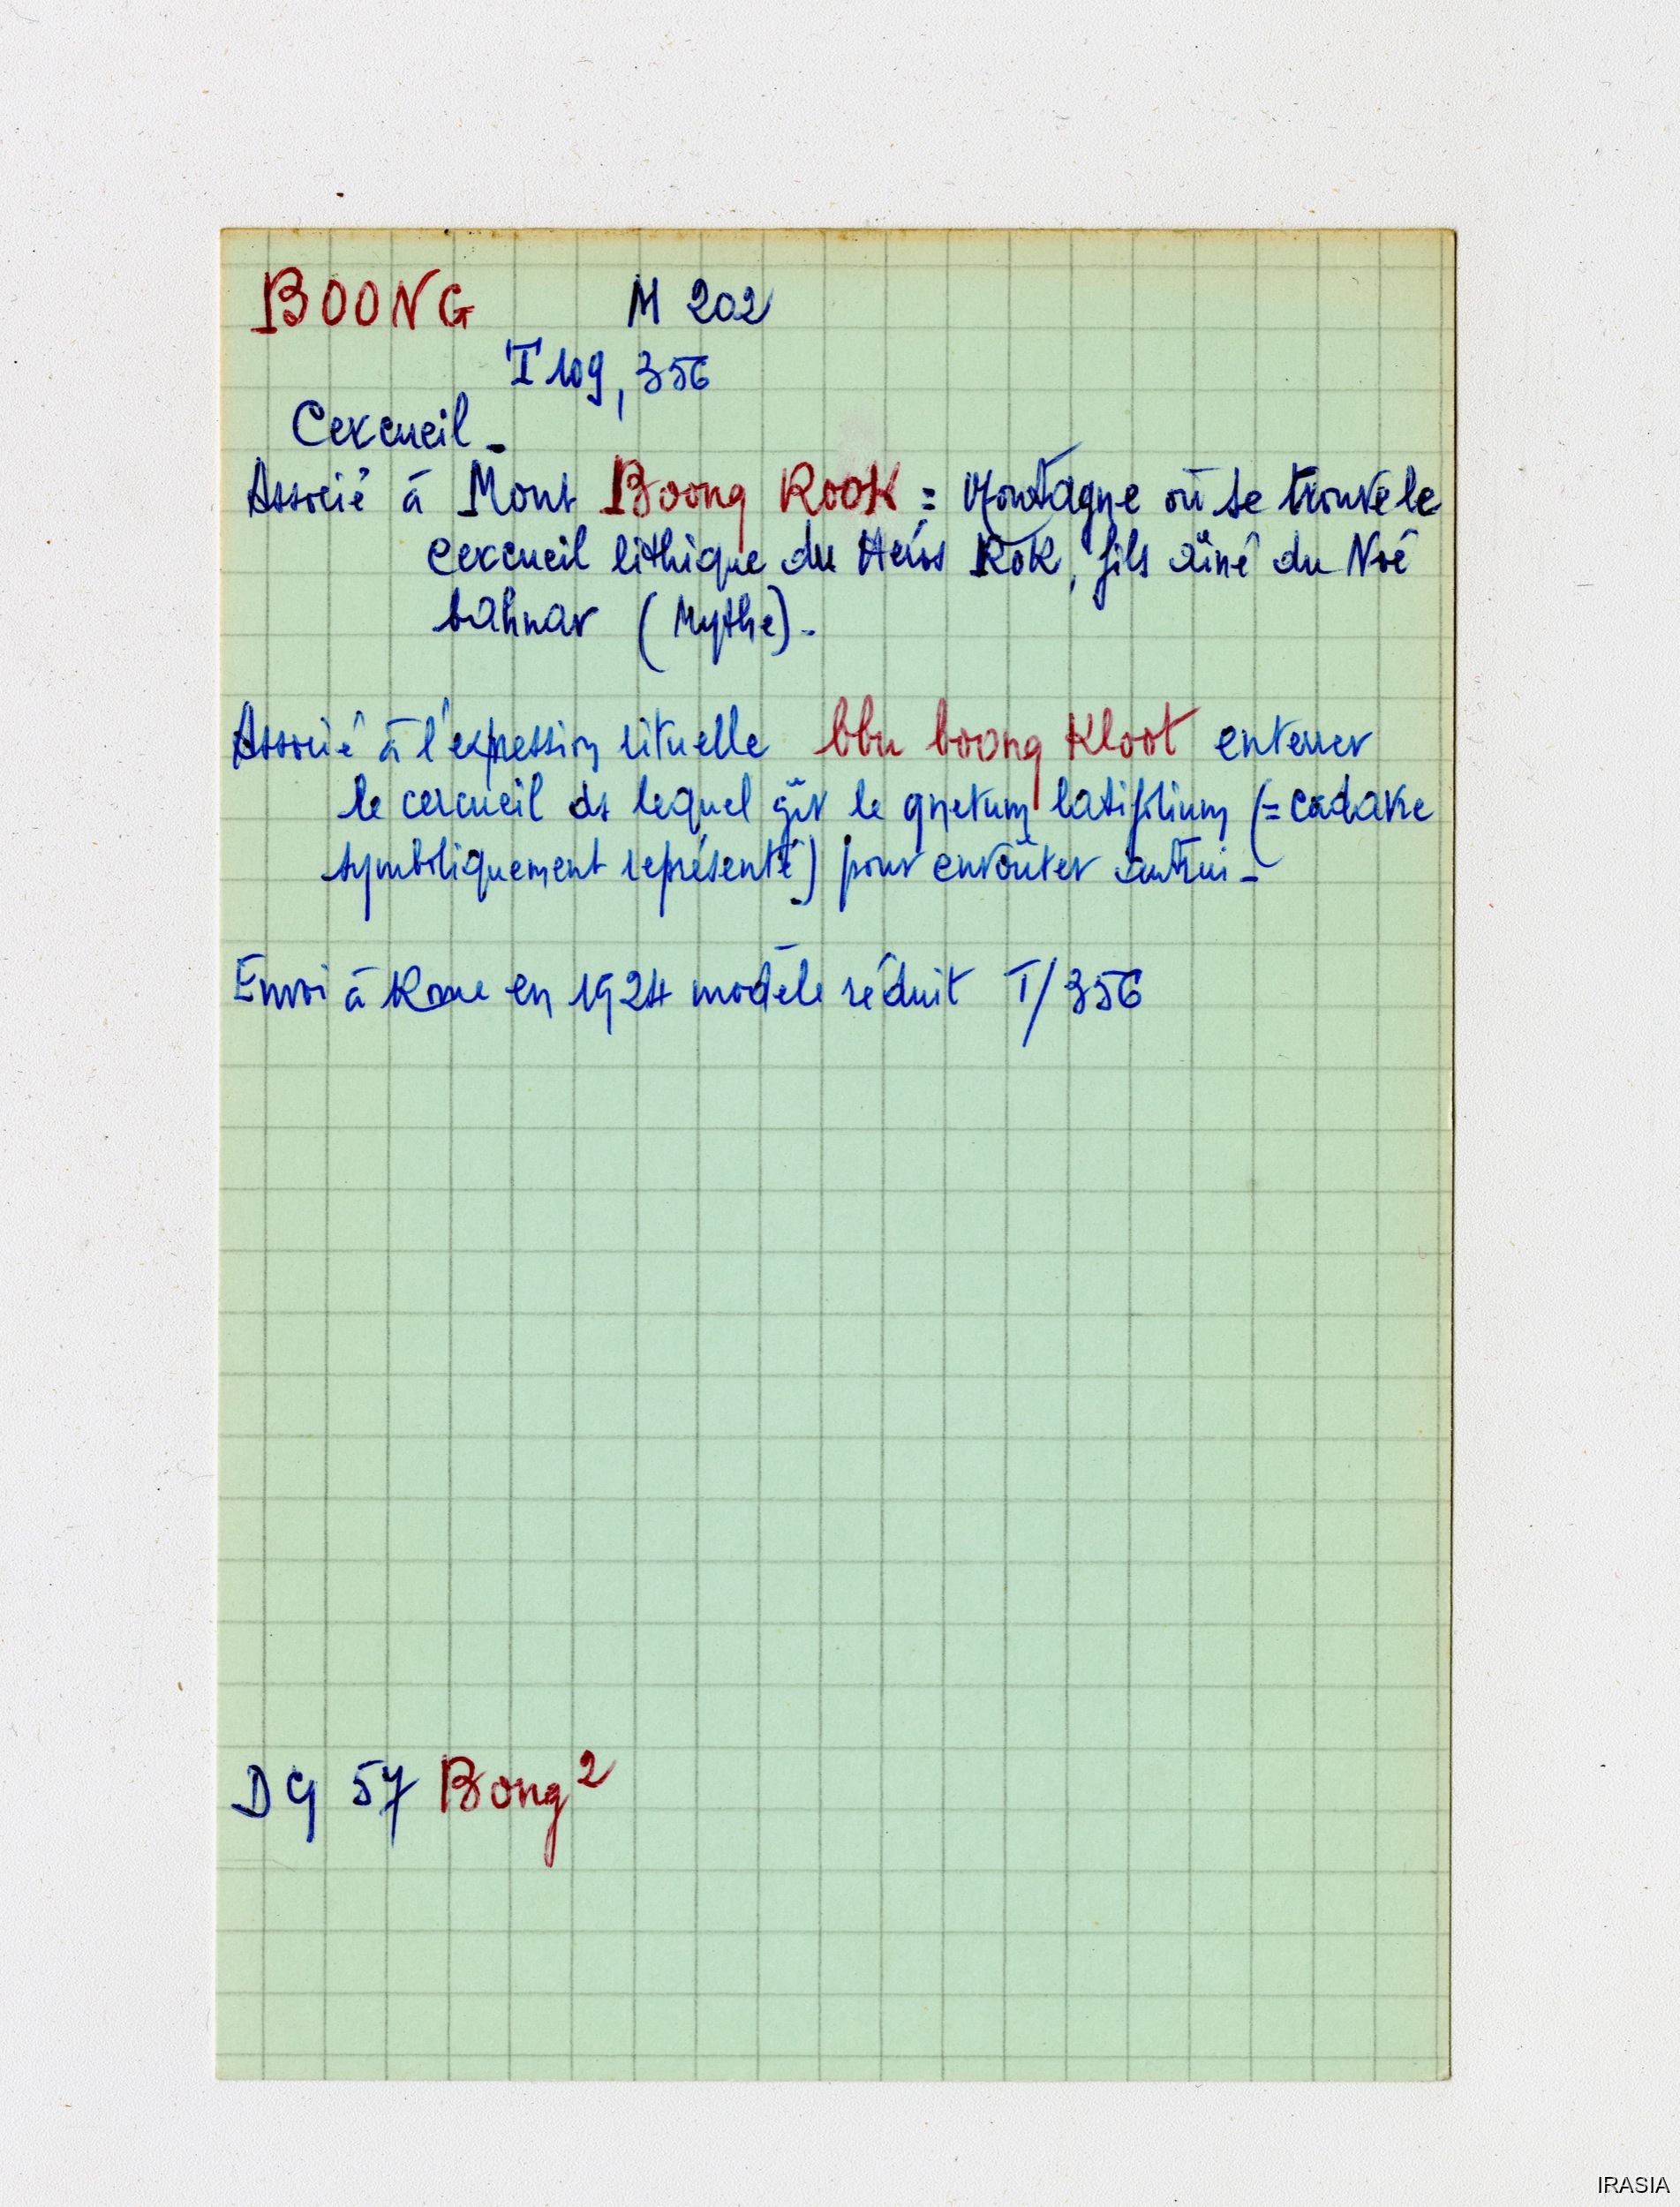 BOONG M 202
T 109, 356
Cercueil -
Associé à Mont Boong ROOK = Montagne où se trouve le
cercueil lithique du Héros ROK, fils aîné du Noé
bahnar (Mythe).
Associé à l'expression rituelle bbu boong Kloot enterrer
le cercueil ds lequel gît le gnetum latifolium (= cadavre
symboliquement représenté) pour envoûter autrui -
Envoi à Rome en 1924 modèle réduit T/356
DG 57 Bong²
IRASIA